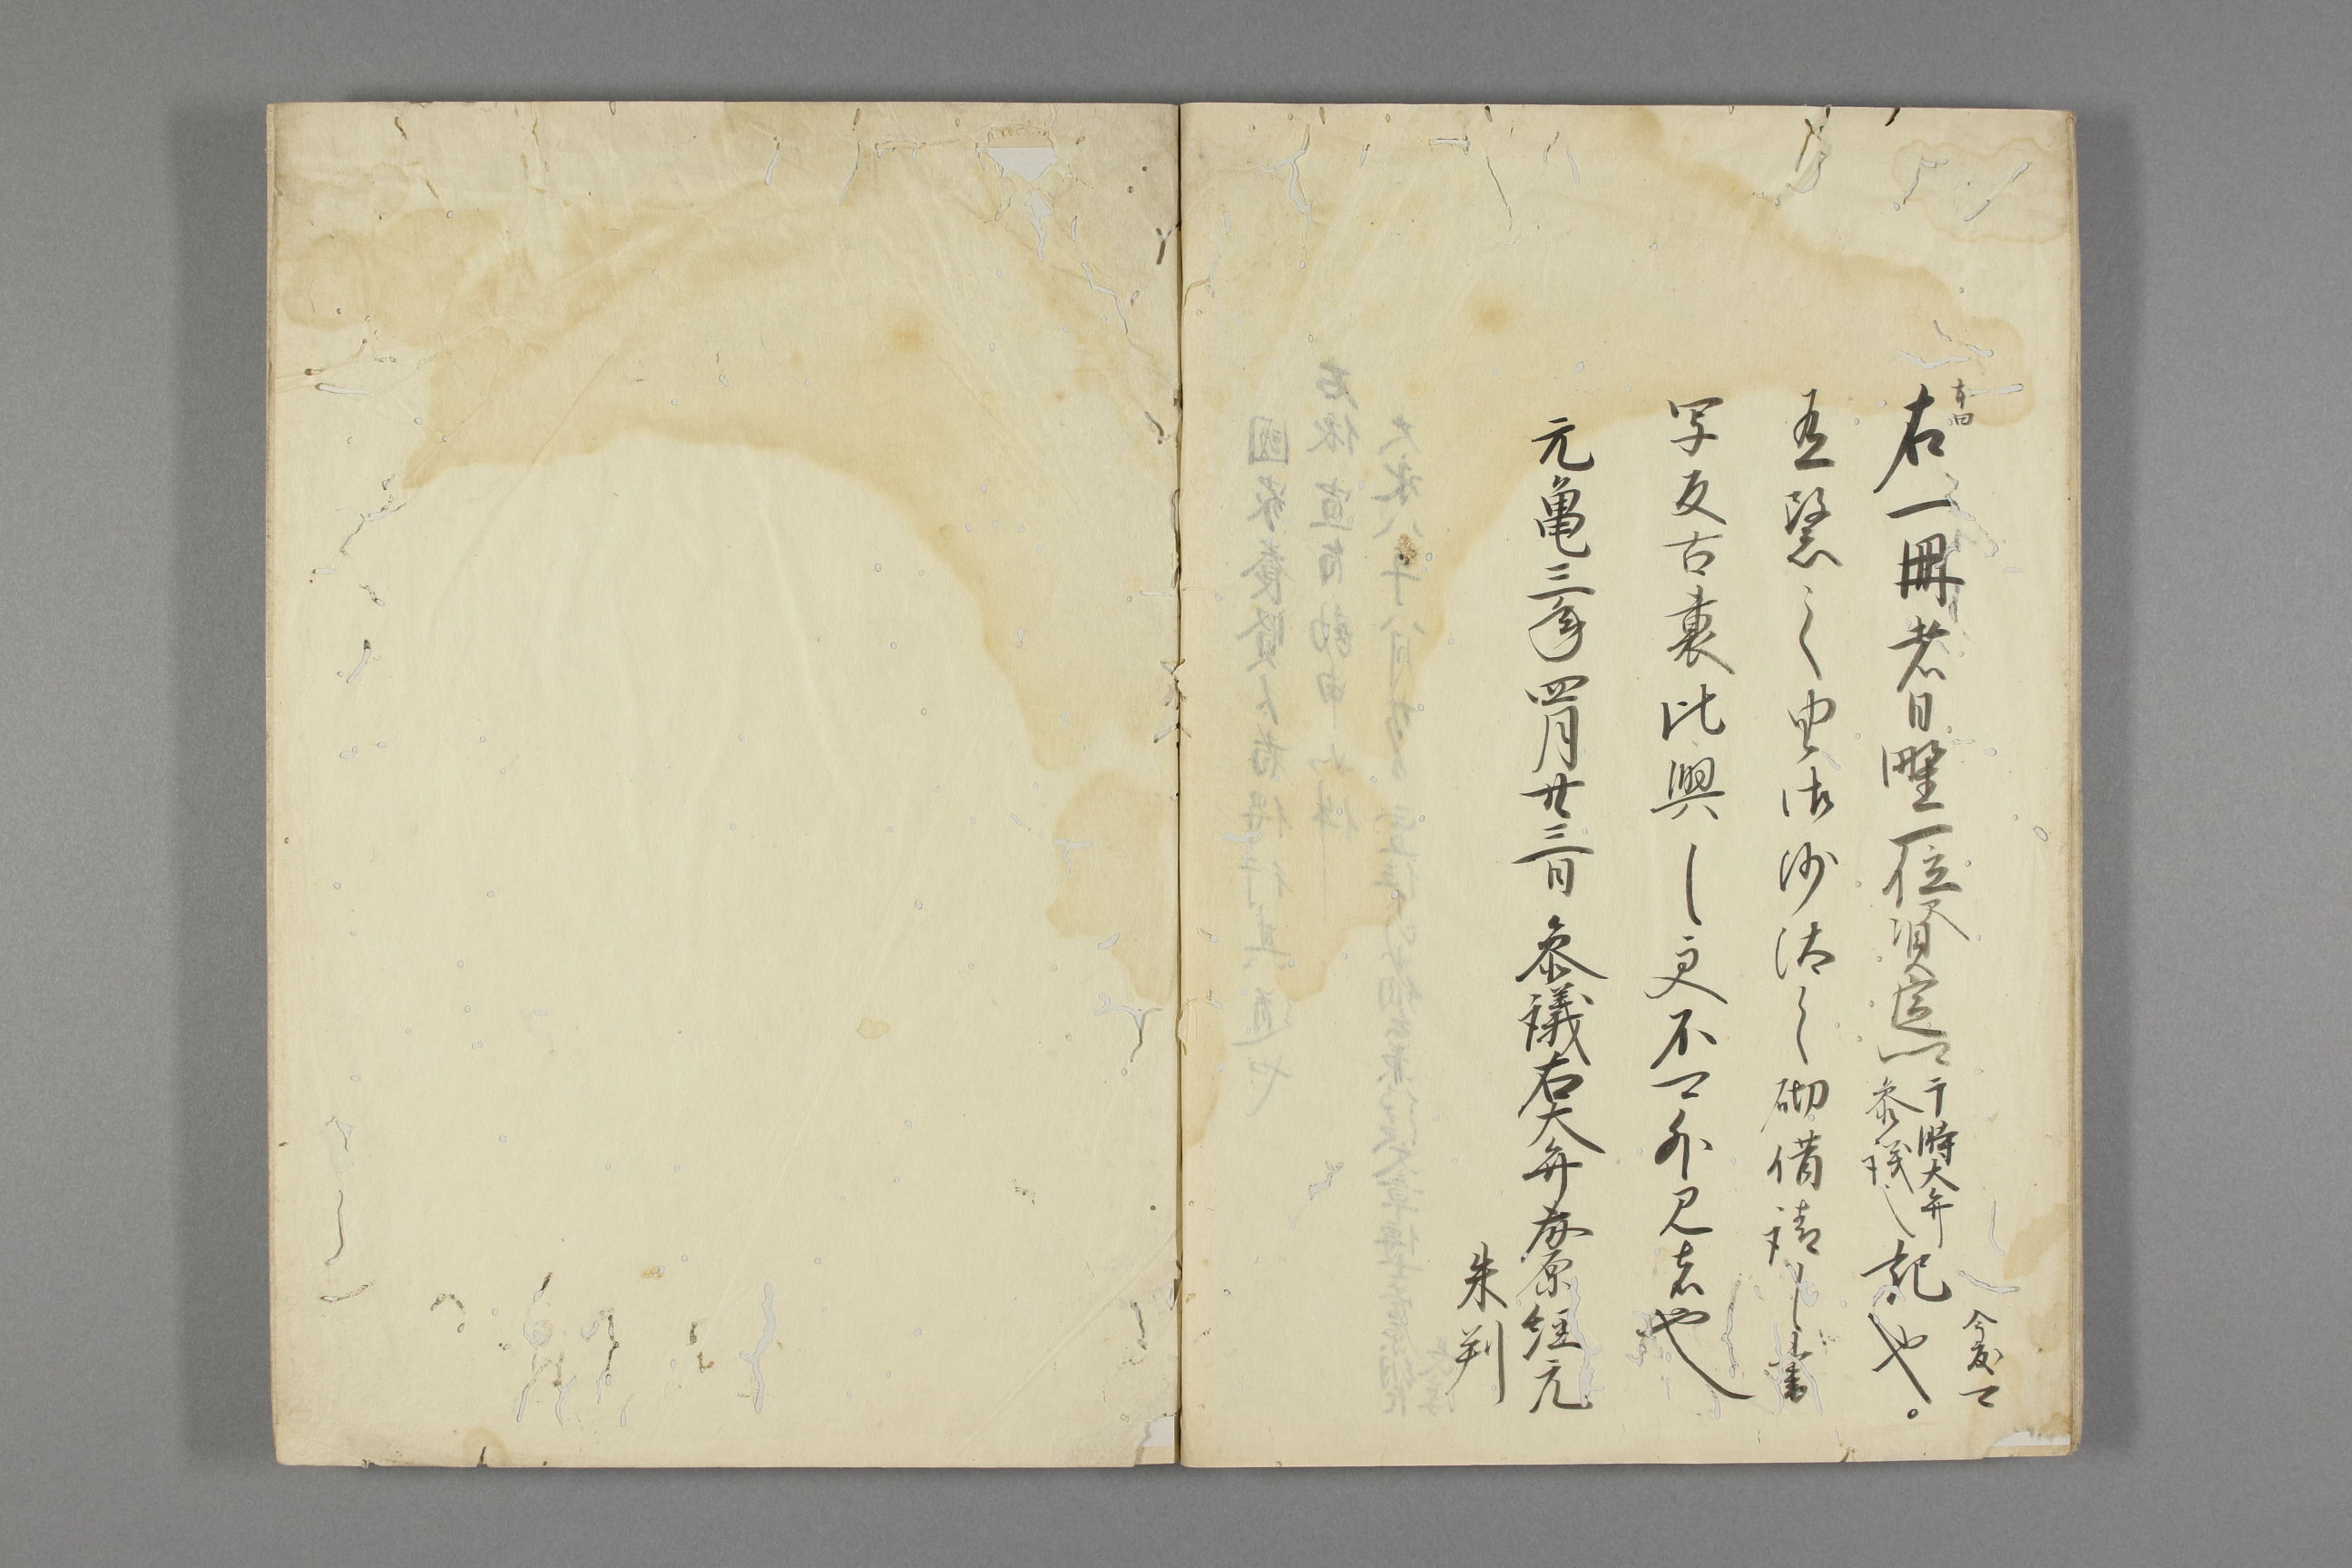 本曰
右一冊者日野一位資定卿于時大弁参議之記也今度可
有竪之由御沙汰之砌借請之書
写反古裏比興之更不可外見者也
元亀三年四月廿三日 参議右大弁藤原経元
朱判